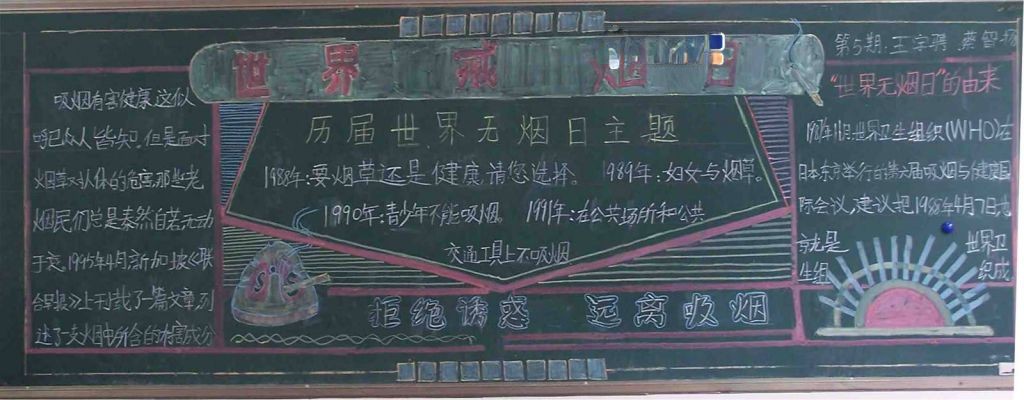 世界戒烟日
第5期:王宇骋 蔡智扬
吸烟有害健康,这似
乎已众人皆知,但是面对
烟草对人体的危害,那些老
烟民们总是泰然自若,无动
于衷。1995年4月,新加坡《联
合早报》上刊载了一篇文章,列
述了一支烟中所含的有害成分
历届世界无烟日主题
1988年:要烟草还是健康,请您选择。 1989年:妇女与烟草。
1990年:青少年不能吸烟。 1991年:在公共场所和公共
交通工具上不吸烟
拒绝诱惑 远离吸烟
"世界无烟日"的由来
1987年11月:世界卫生组织(WHO)在
日本东京举行的第六届吸烟与健康国
际会议,建议把1988年4月7日,也
就是 世界卫
生组 织成